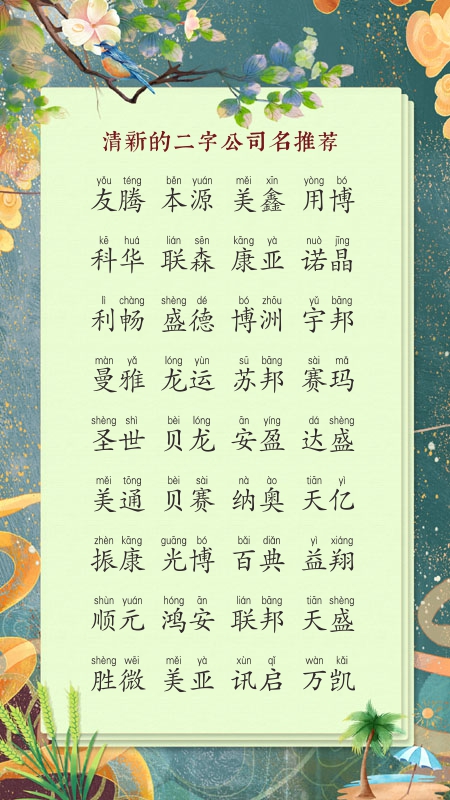 清新的二字公司名推荐
yǒu téng běn yuán měi xīn yòng bó
友腾 本源 美鑫 用博
kē huá lián sēn kāng yà nuò jīng
科华 联森 康亚 诺晶
lì chàng shèng dé bó zhōu yǔ bāng
利畅 盛德 博洲 宇邦
màn yǎ lóng yùn sū bāng sài mǎ
曼雅 龙运 苏邦 赛玛
shèng shì bèi lóng ān yíng dá shèng
圣世 贝龙 安盈 达盛
měi tōng bèi sài nà ào tiān yì
美通 贝赛 纳奥 天亿
zhèn kāng guāng bó bǎi diǎn yì xiáng
振康 光博 百典 益翔
shùn yuán hóng ān lián bāng tiān shèng
顺元 鸿安 联邦 天盛
shèng wēi měi yà xùn qǐ wàn kǎi
胜微 美亚 讯启 万凯